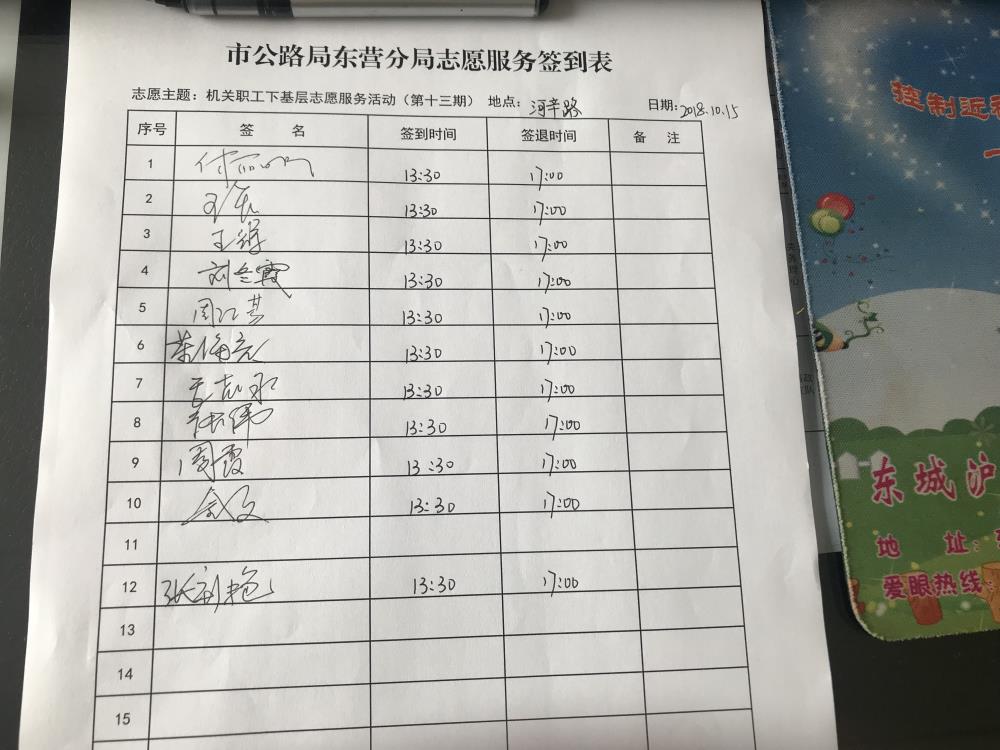 市公路局东营分局志愿服务签到表
志愿主题：机关职工下基层志愿服务活动（第十三期） 地点：河辛路 日期：2018.10.15
序号 签 名 签到时间 签退时间 备 注
1 13:30 17:00
2 13:30 17:00
3 王 13:30 17:00
4 刘冬霞 13:30 17:00
5 周江其 13:30 17:00
6 13:30 17:00
7 13:30 17:00
8 张伟 13:30 17:00
9 周霞 13:30 17:00
10 13:30 17:00
11
12 13:30 17:00
13
14
15
控制近
东城沪
地 址：
爱眼热线：